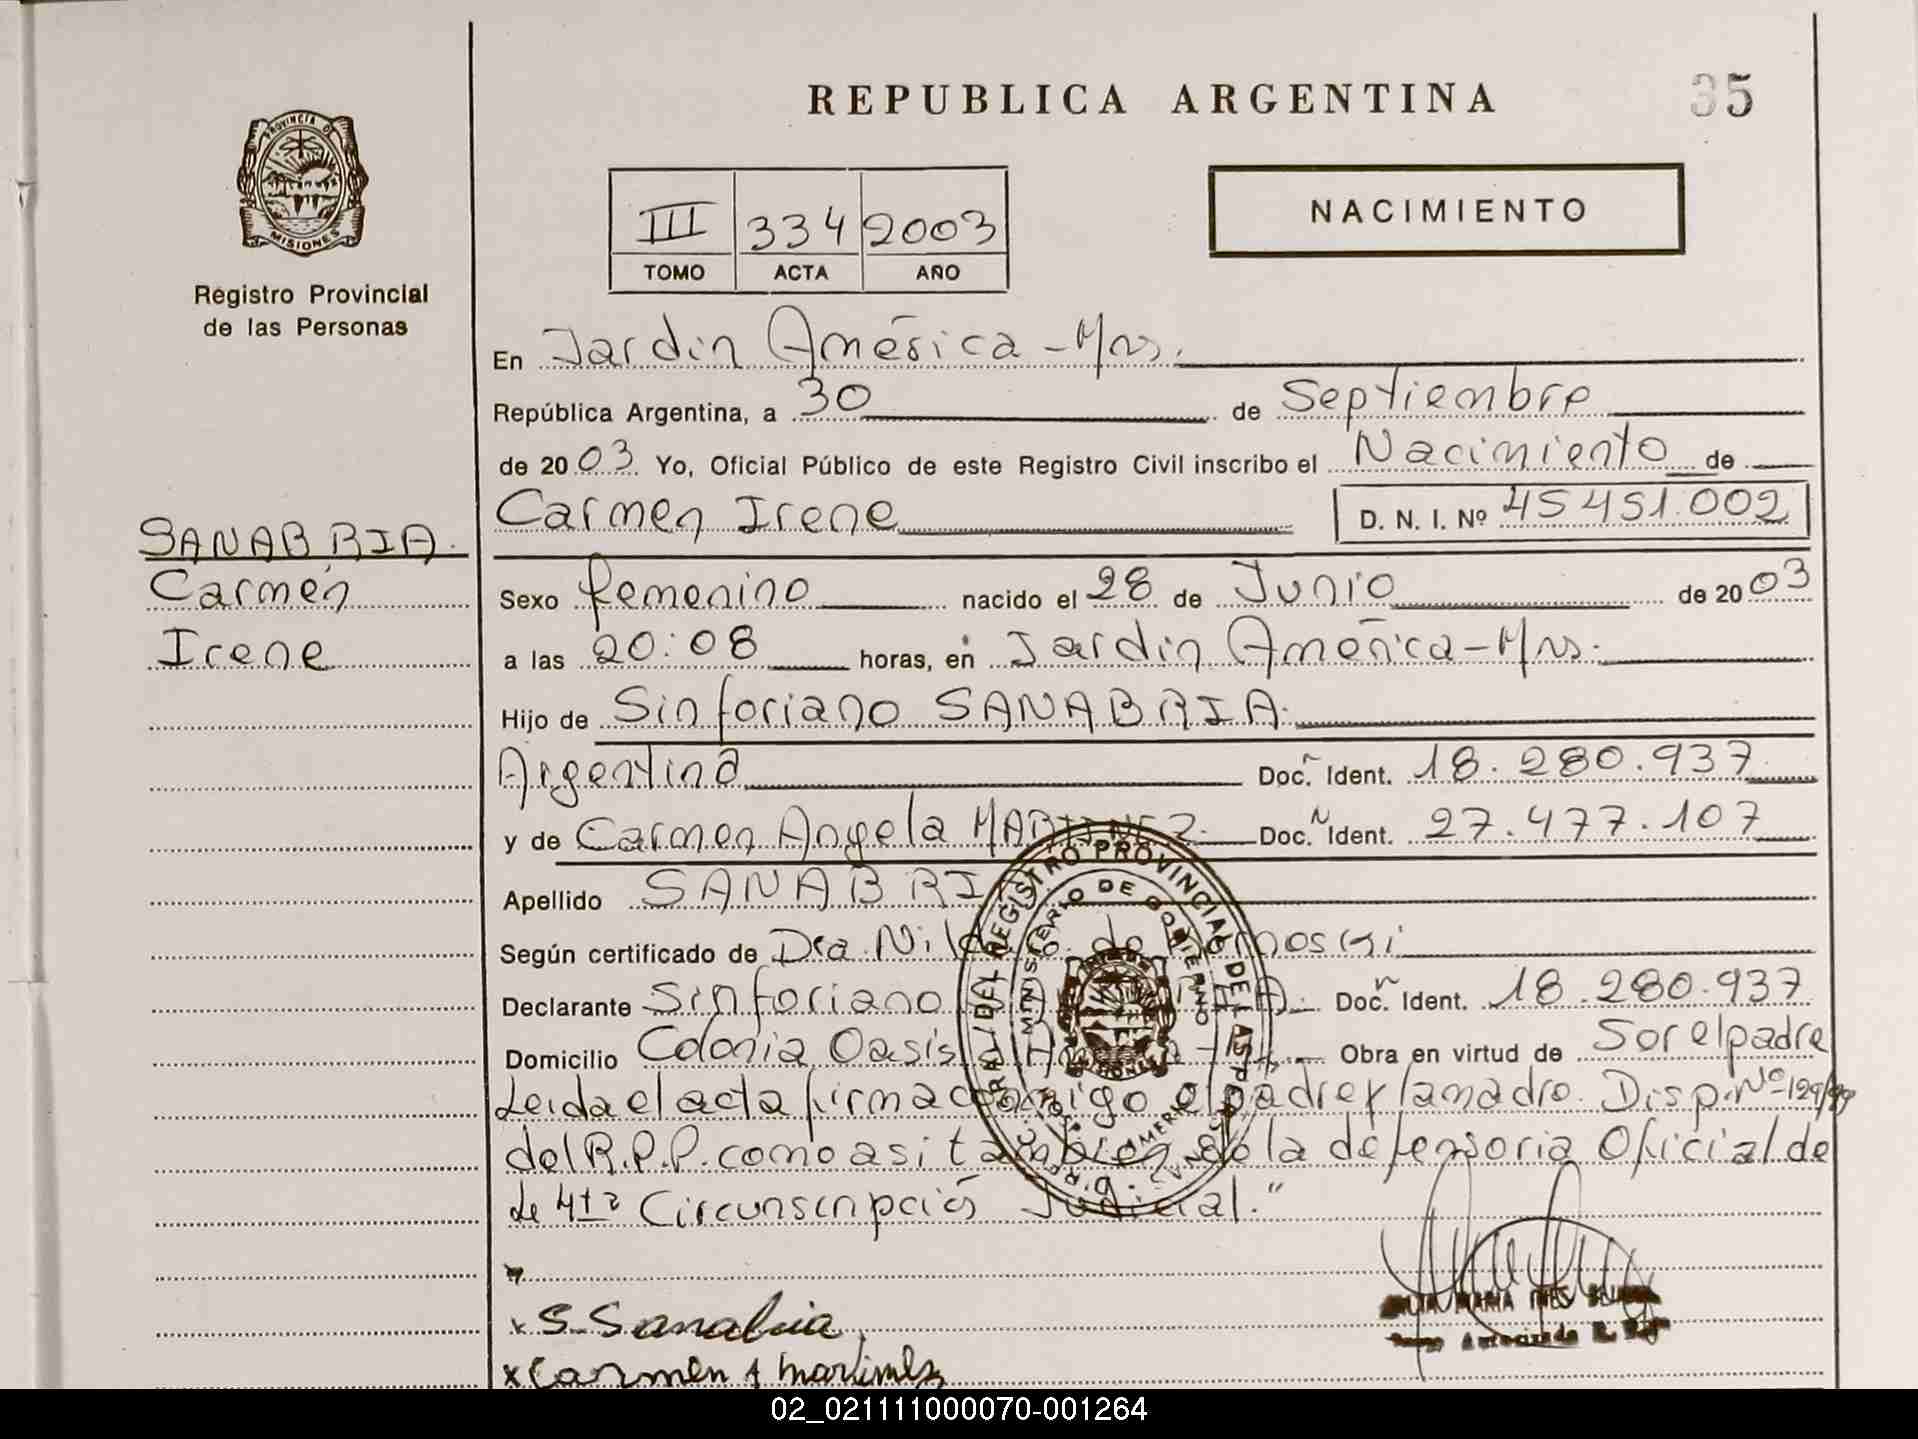 REPUBLICA ARGENTINA
35
PROVINCIA DE
MISIONES
Registro Provincial
de las Personas
III 334 2003
TOMO ACTA AÑO
NACIMIENTO
En Jardin América - Mns.
República Argentina, a 30 de Septiembre
de 2003. Yo, Oficial Público de este Registro Civil inscribo el Nacimiento de
Carmen Irene D. N. I. Nº 45451.002
SANABRIA.
Carmen
Irene
Sexo femenino nacido el 28 de Junio de 2003
a las 20:08 horas, en Jardin América - Mns.
Hijo de Sinforiano SANABRIA.
Argentina Doc. Ident. 18.280.937
y de Carmen Angela MARTINEZ. Doc. Ident. 27.477.107
Apellido SANABRI
Según certificado de Dra. Nilda de
Declarante Sinforiano Doc. Ident. 18.280.937
Domicilio Colonia Oasis Obra en virtud de Sor el padre
Leida el acta firma conmigo el padre y la madre. Disp. Nº 129/99
del R.P.P. como asi tambien de la defensoria Oficial de
de 4ta Circunscripció Judicial."
DEL REGISTRO PROVINCIAL DE LAS P
MINISTERIO DE GOBIERNO
x S. Sanabria
x Carmen A martinez
MARIA INES
02_021111000070-001264